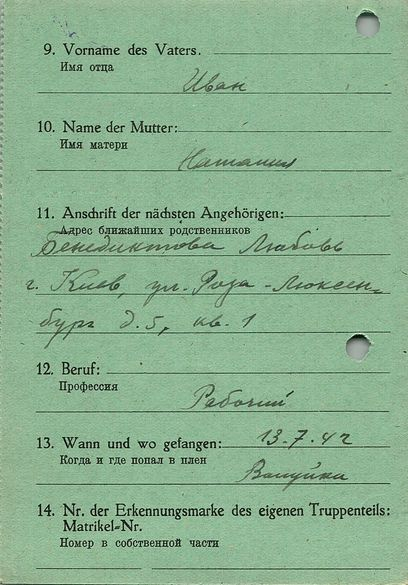 9. Vorname des Vaters.
Имя отца
Иван
10. Name der Mutter:
Имя матери
Наталия
11. Anschrift der nächsten Angehörigen:
Адрес ближайших родственников
Бенедиктова Любовь
г. Киев, ул. Роза-Люксем-
бург д. 5, кв. 1
12. Beruf:
Профессия
Рабочий
13. Wann und wo gefangen: 13.7.42
Когда и где попал в плен
Валуйки
14. Nr. der Erkennungsmarke des eigenen Truppenteils:
Matrikel-Nr.
Номер в собственной части